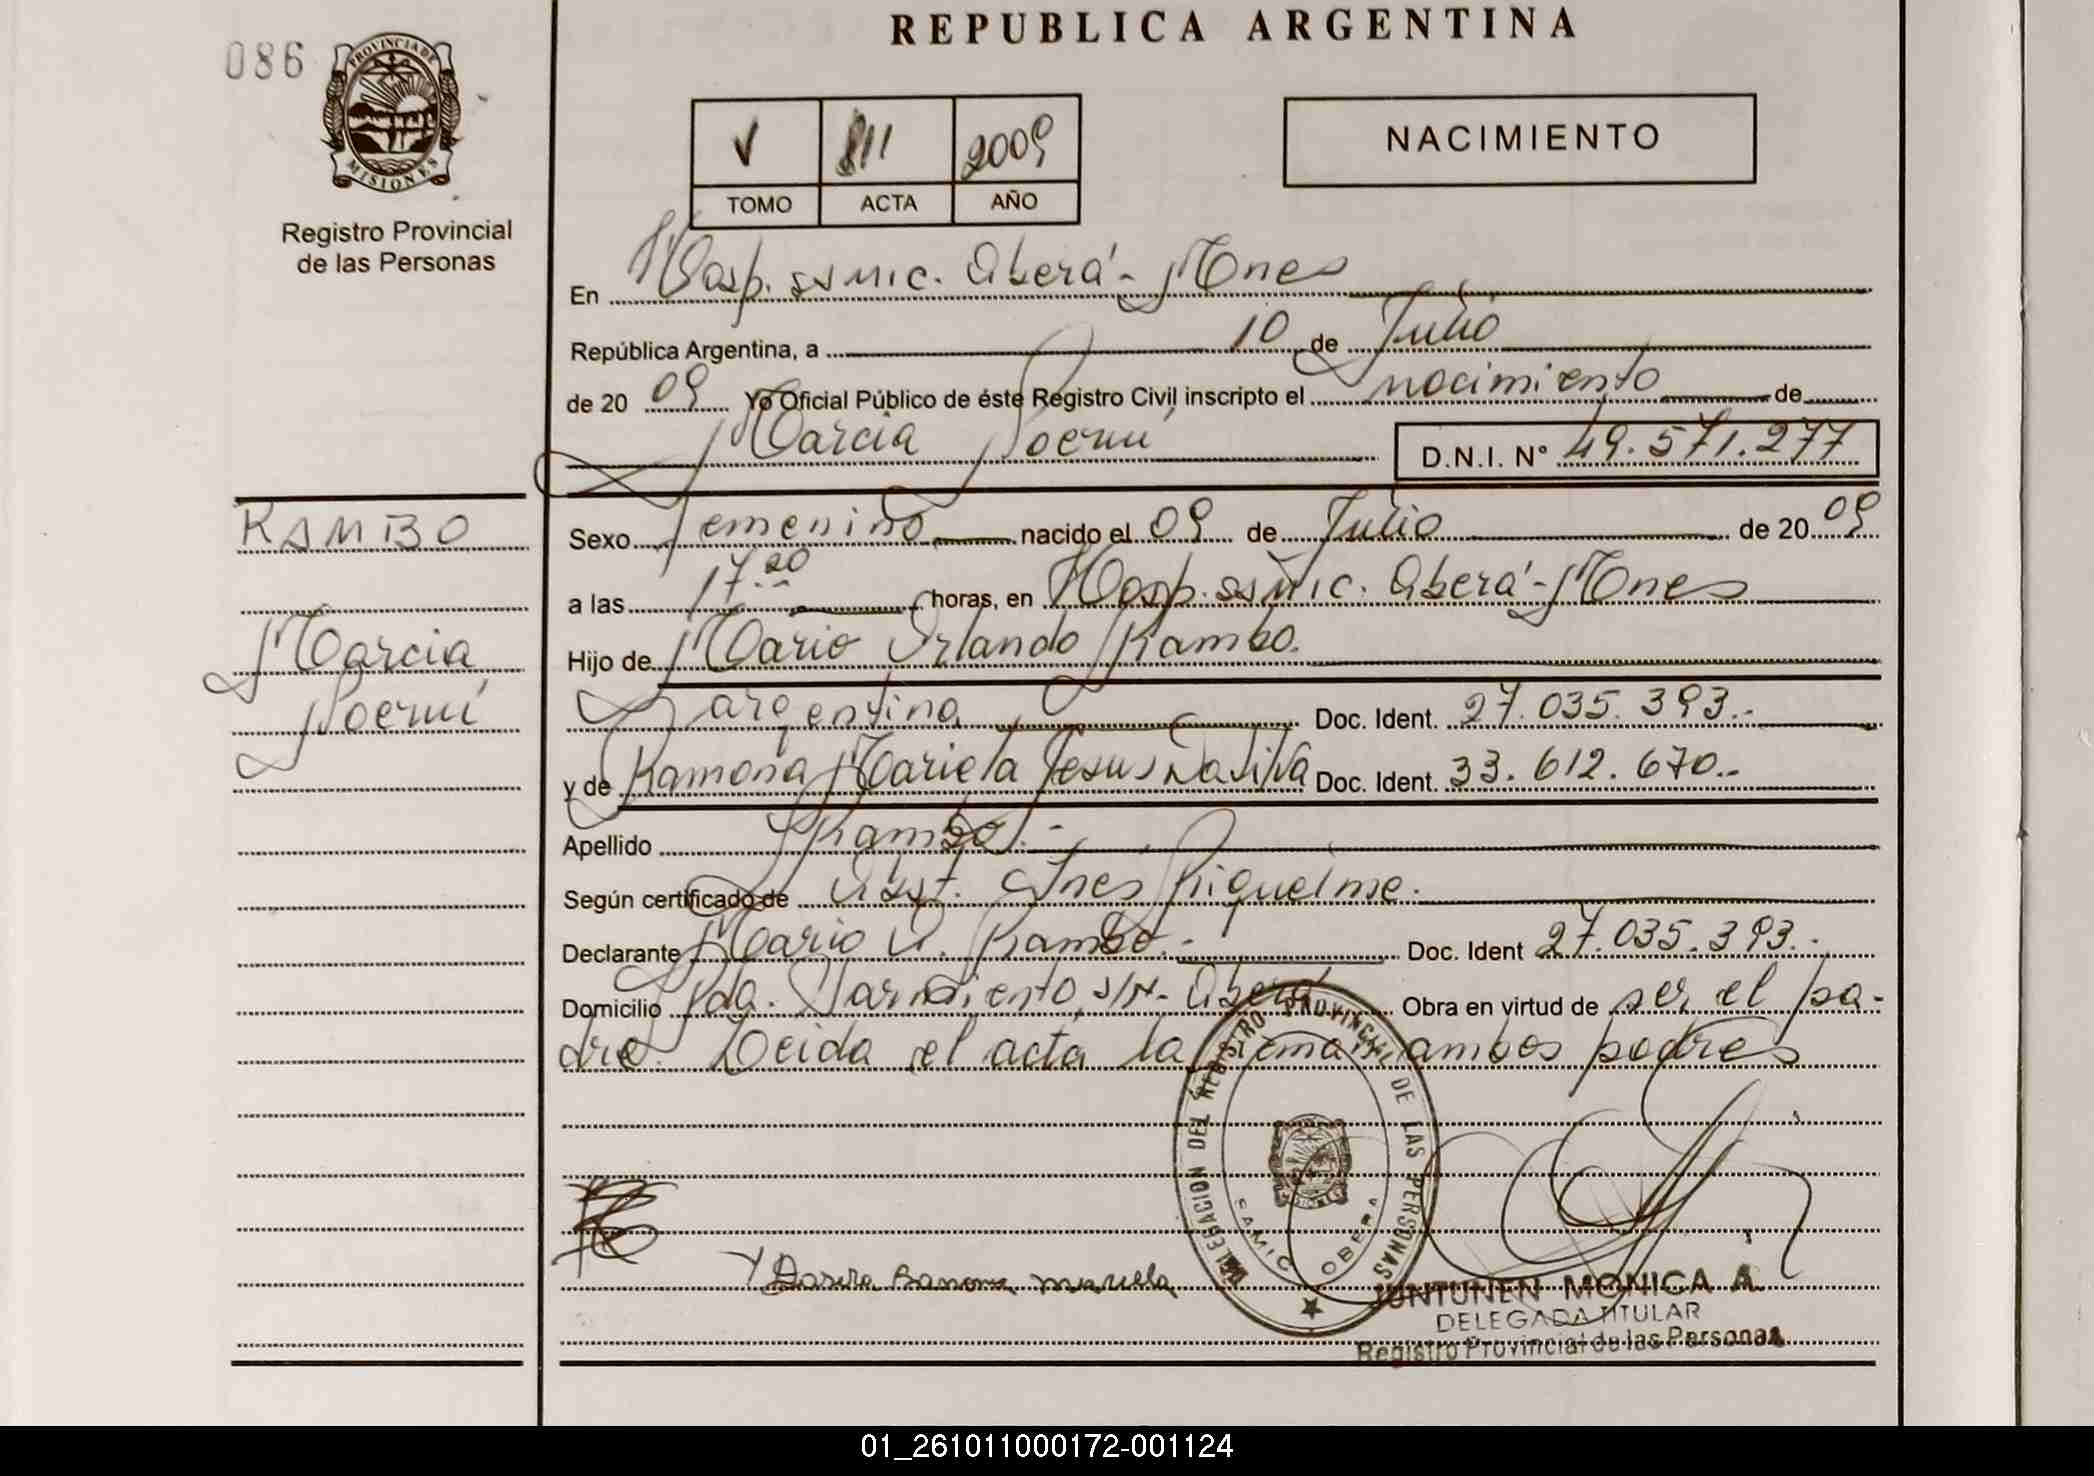 REPUBLICA ARGENTINA
086
PROVINCIA DE
MISIONES
Registro Provincial
de las Personas
V 811 2009
TOMO ACTA AÑO
NACIMIENTO
En Hosp. SSMIC. Oberá - Mnes
República Argentina, a 10 de Julio
de 20 09 Yo Oficial Público de éste Registro Civil inscripto el nacimiento de
Marcia Noemí
D.N.I. N° 49.571.277
RAMBO
Marcia
Noemí
Sexo femenino nacido el 09 de Julio de 20 09
a las 17.20 horas, en Hosp. SSMIC. Oberá - Mnes
Hijo de Mario Orlando Rambo.
argentina Doc. Ident. 27.035.393.-
y de Ramona Mariela Jesus Da Silva Doc. Ident. 33.612.670.-
Apellido Rambo.-
Según certificado de Obst. Ines Riquelme.
Declarante Mario O. Rambo.- Doc. Ident 27.035.393.-
Domicilio Pda. Sarmiento, s/N- Oberá Obra en virtud de ser el pa-
dre. Leida el acta la firman ambos padres
DELEGACION DEL REGISTRO PROVINCIAL DE LAS PERSONAS
SAMIC OBERA
Dasilva Ramona mariela
JUNTUNEN MONICA A.
DELEGADA TITULAR
Registro Provincial de las Personas
01_261011000172-001124